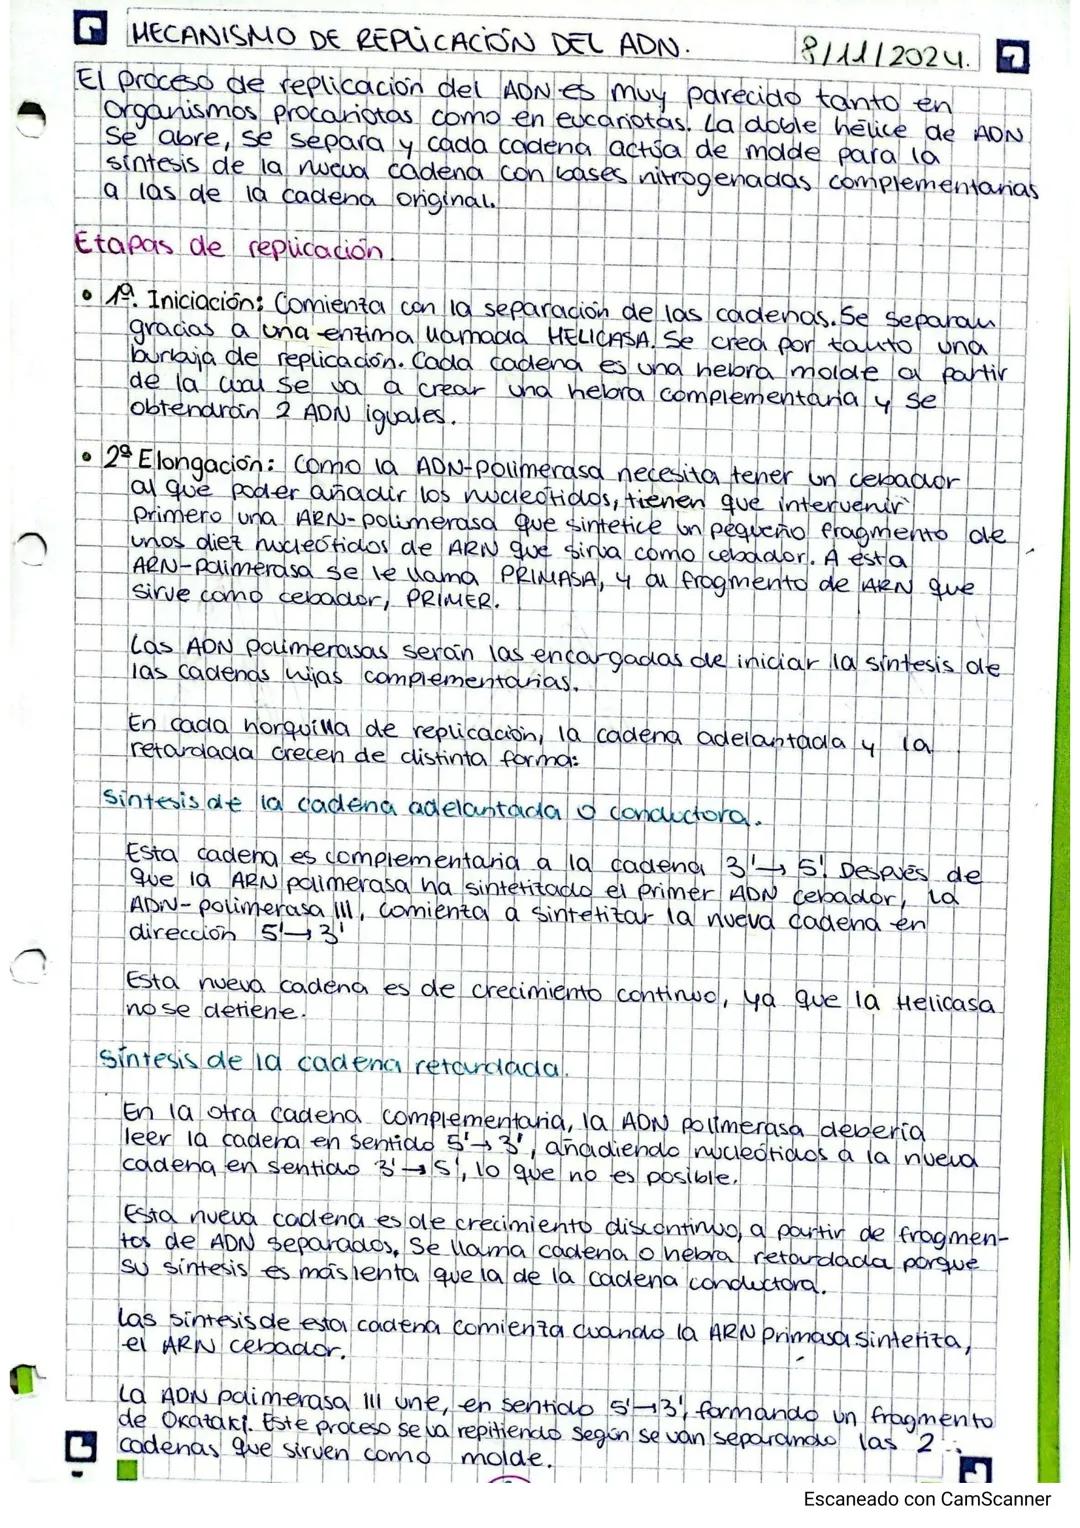 MECANISMO DE REPLICACIÓN DEL ADN.
8/11/2024.
El proceso de replicación del ADN es muy parecido tanto en
organismos procariotas como en eucariotas. La doble hélice de ADN
se abre, se separa y cada cadena actúa de molde para la
síntesis de la nueva cadena con bases nitrogenadas complementarias
a las de la cadena original.
Etapas de replicación.
• 1º. Iniciación: Comienza con la separación de las cadenas. Se separan
gracias a una enzima llamada HELICASA. Se crea por tanto una
burbuja de replicación. Cada cadena es una hebra molde a partir
de la cual se va a crear una hebra complementaria y se
obtendrán 2 ADN iguales.
• 2º Elongación: Como la ADN-polimerasa necesita tener un cebador
al que poder añadir los nucleótidos, tienen que intervenir
primero una ARN-polimerasa que sintetice un pequeño fragmento de
unos diez nucleótidos de ARN que sirva como cebador. A esta
ARN-polimerasa se le llama PRIMASA, y al fragmento de ARN que
sirve como cebador, PRIMER.
Las ADN polimerasas serán las encargadas de iniciar la síntesis de
las cadenas hijas complementarias.
En cada horquilla de replicación, la cadena adelantada y la
retardada crecen de distinta forma:
Síntesis de la cadena adelantada o conductora.
Esta cadena es complementaria a la cadena 3'→5'. Después de
que la ARN polimerasa ha sintetizado el primer ADN cebador, la
ADN-polimerasa III, comienza a sintetizar la nueva cadena en
dirección 5'→3'
Esta nueva cadena es de crecimiento continuo, ya que la Helicasa
no se detiene.
Síntesis de la cadena retardada.
En la otra cadena complementaria, la ADN polimerasa debería
leer la cadena en sentido 5'→3', añadiendo nucleótidos a la nueva
cadena en sentido 3'→5', lo que no es posible.
Esta nueva cadena es de crecimiento discontinuo, a partir de fragmen-
tos de ADN separados. Se llama cadena o hebra retardada porque
su síntesis es más lenta que la de la cadena conductora.
Las síntesis de esta cadena comienza cuando la ARN primasa sintetiza,
el ARN cebador.
La ADN polimerasa III une, en sentido 5'→3', formando un fragmento
de Okataki. Este proceso se va repitiendo según se van separando las 2
cadenas que sirven como molde.
Escaneado con CamScanner